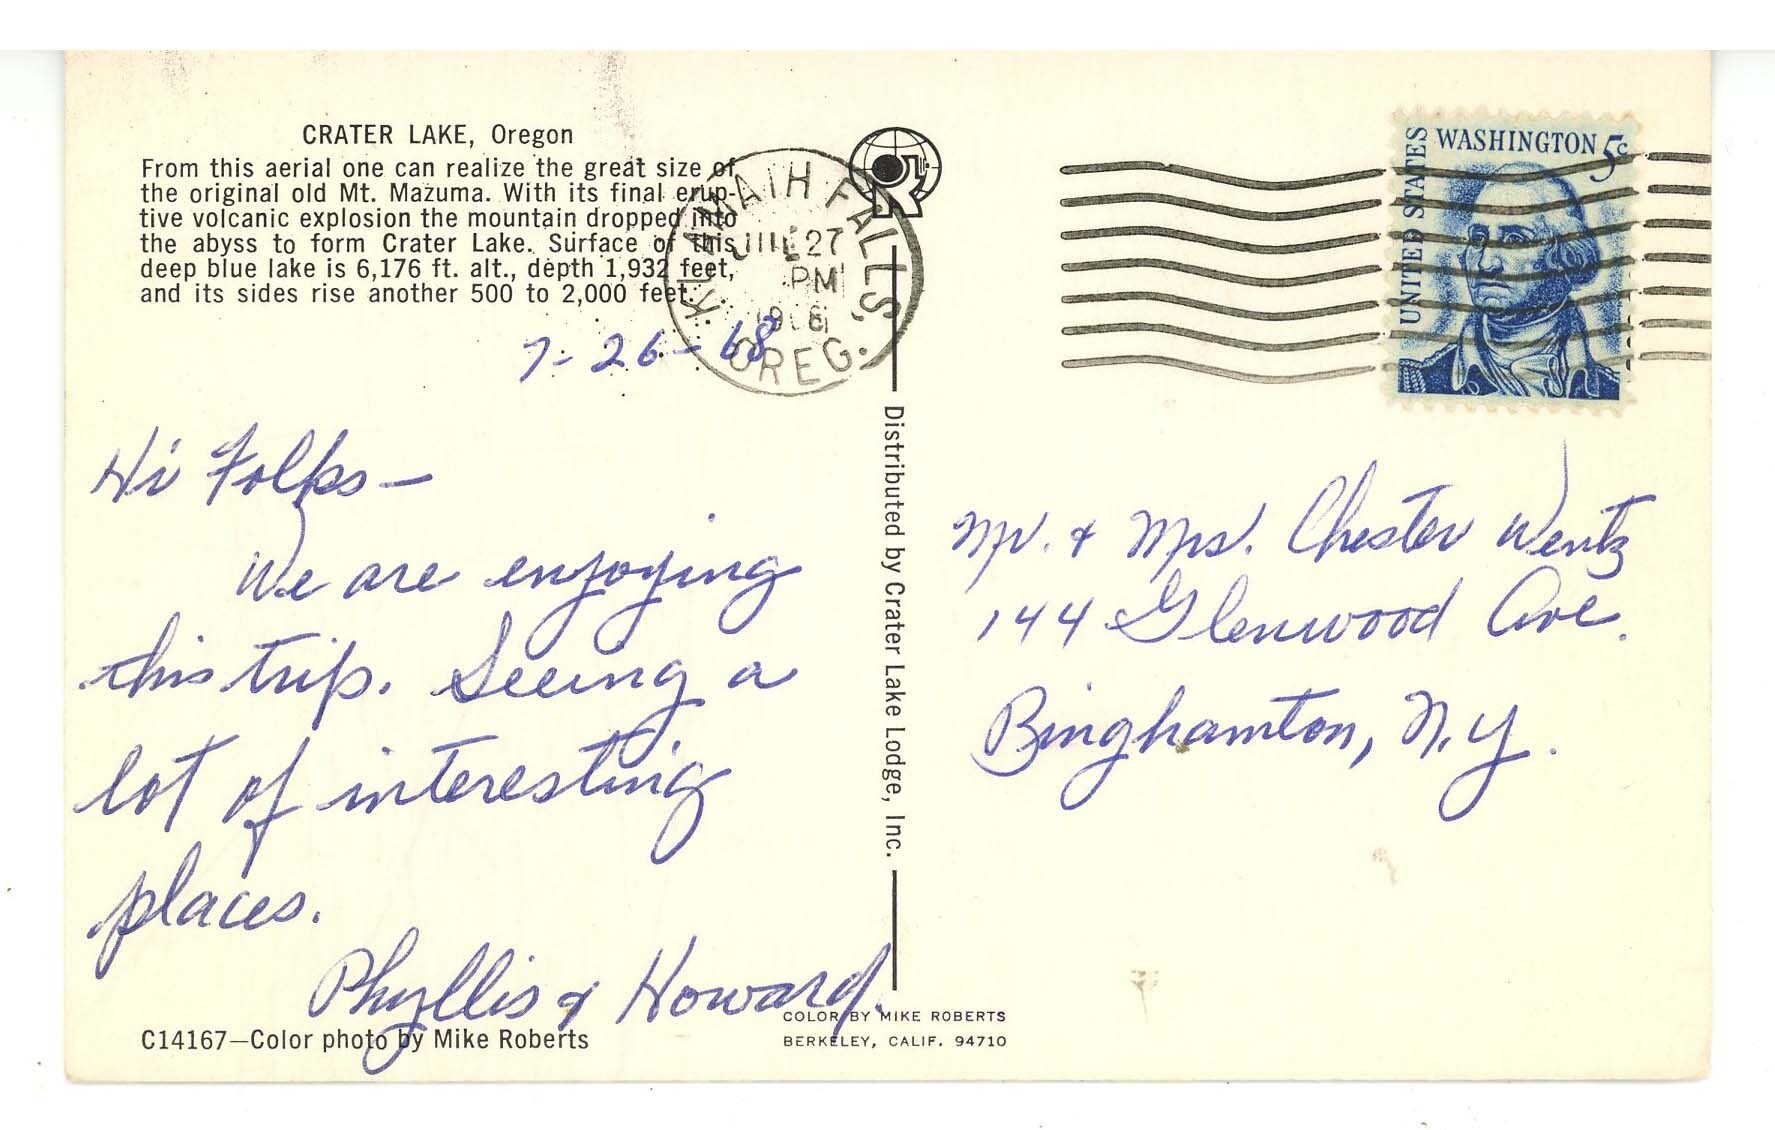 CRATER LAKE, Oregon
From this aerial one can realize the great size of
the original old Mt. Mazuma. With its final erup-
tive volcanic explosion the mountain dropped into
the abyss to form Crater Lake. Surface of this
deep blue lake is 6,176 ft. alt., depth 1,932 feet,
and its sides rise another 500 to 2,000 feet.
KLAMATH FALLS
JUL 27
PM
OREG.
7-26-68
Hi Folks—
We are enjoying
this trip. Seeing a
lot of interesting
places.
Phyllis & Howard.
C14167—Color photo by Mike Roberts
Distributed by Crater Lake Lodge, Inc.
COLOR BY MIKE ROBERTS
BERKELEY, CALIF. 94710
UNITED STATES
WASHINGTON 5c
Mr. & Mrs. Chester Wentz
144 Glenwood Ave.
Binghamton, N.Y.